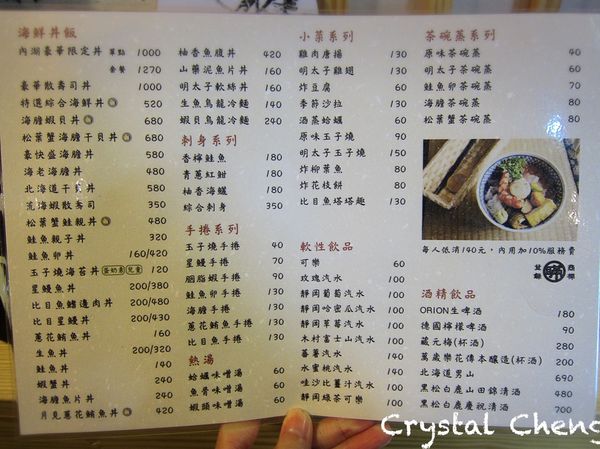 海鮮丼飯
內湖豪華限定丼 單點 1000
套餐 1270
豪華散壽司丼 1000
特選綜合海鮮丼 520
海膽蝦貝丼 680
松葉蟹海膽干貝丼 680
豪快盛海膽丼 580
海老海膽丼 580
北海道干貝丼 450
荒海蝦散壽司 350
松葉蟹鮭親丼 480
鮭魚親子丼 320
鮭魚卵丼 420/160
玉子燒海苔丼 蛋奶素 兒童 120
星鰻魚丼 200/380
比目魚鰭邊肉丼 200/480
比目星鰻丼 200/430
蔥花鮪魚丼 130
生魚丼 200/320
鮭魚丼 240
蝦蟹丼 240
海膽魚片丼 240
月見蔥花鮪魚丼 420
柚香魚腹丼 420
山藥泥魚片丼 160
明太子軟絲丼 160
生魚烏龍冷麵 140
蝦貝烏龍冷麵 240
刺身系列
香檸鮭魚 180
青蔥紅魽 180
柚香海鱺 180
綜合刺身 350
手捲系列
玉子燒手捲 40
星鰻手捲 80
胭脂蝦手捲 80
鮭魚卵手捲 80
海膽手捲 80
蔥花鮪魚手捲 80
比目魚手捲 80
熱湯
蛤蠣味噌湯 60
魚骨味噌湯 60
蝦頭味噌湯 60
小菜系列
雞肉唐揚 130
明太子雞翅 130
炸豆腐 60
季節沙拉 130
酒蒸蛤蠣 60
原味玉子燒 90
明太子玉子燒 150
炸柳葉魚 80
炸花枝餅 80
比目魚塔塔麵 130
軟性飲品
可樂 60
玫瑰汽水
靜岡葡萄汽水
靜岡哈密瓜汽水
靜岡草莓汽水
木村富士山汽水
蕃薯汽水
水蜜桃汽水
哇沙比薑汁汽水
靜岡綠茶可樂
茶碗蒸系列
原味茶碗蒸 40
明太子茶碗蒸 60
鮭魚卵茶碗蒸 80
海膽茶碗蒸 80
松葉蟹茶碗蒸 80
每人低消140元，內用加10%服務費
酒精飲品
ORION生啤酒 180
德國檸檬啤酒 90
蔵元梅(杯酒) 200
萬歲樂花傳本釀造(杯酒) 200
北海道男山 690
黑松白鹿山田錦清酒 480
黑松白鹿慶祝清酒 700
Crystal Cheng